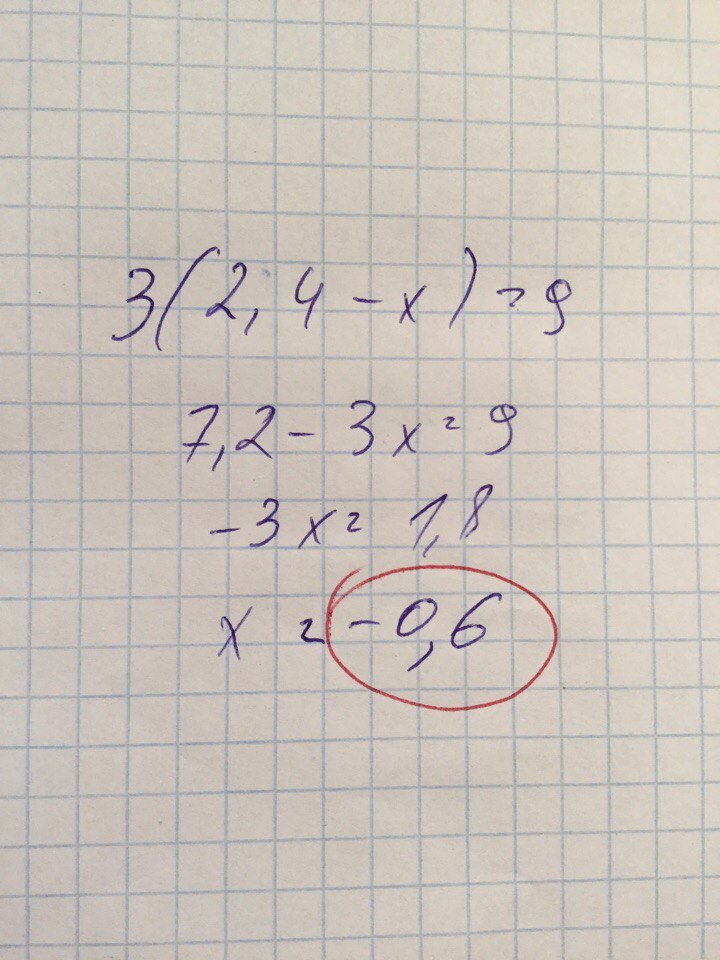 3(2,4-x)=9
7,2-3x=9
-3x=1,8
x=-0,6